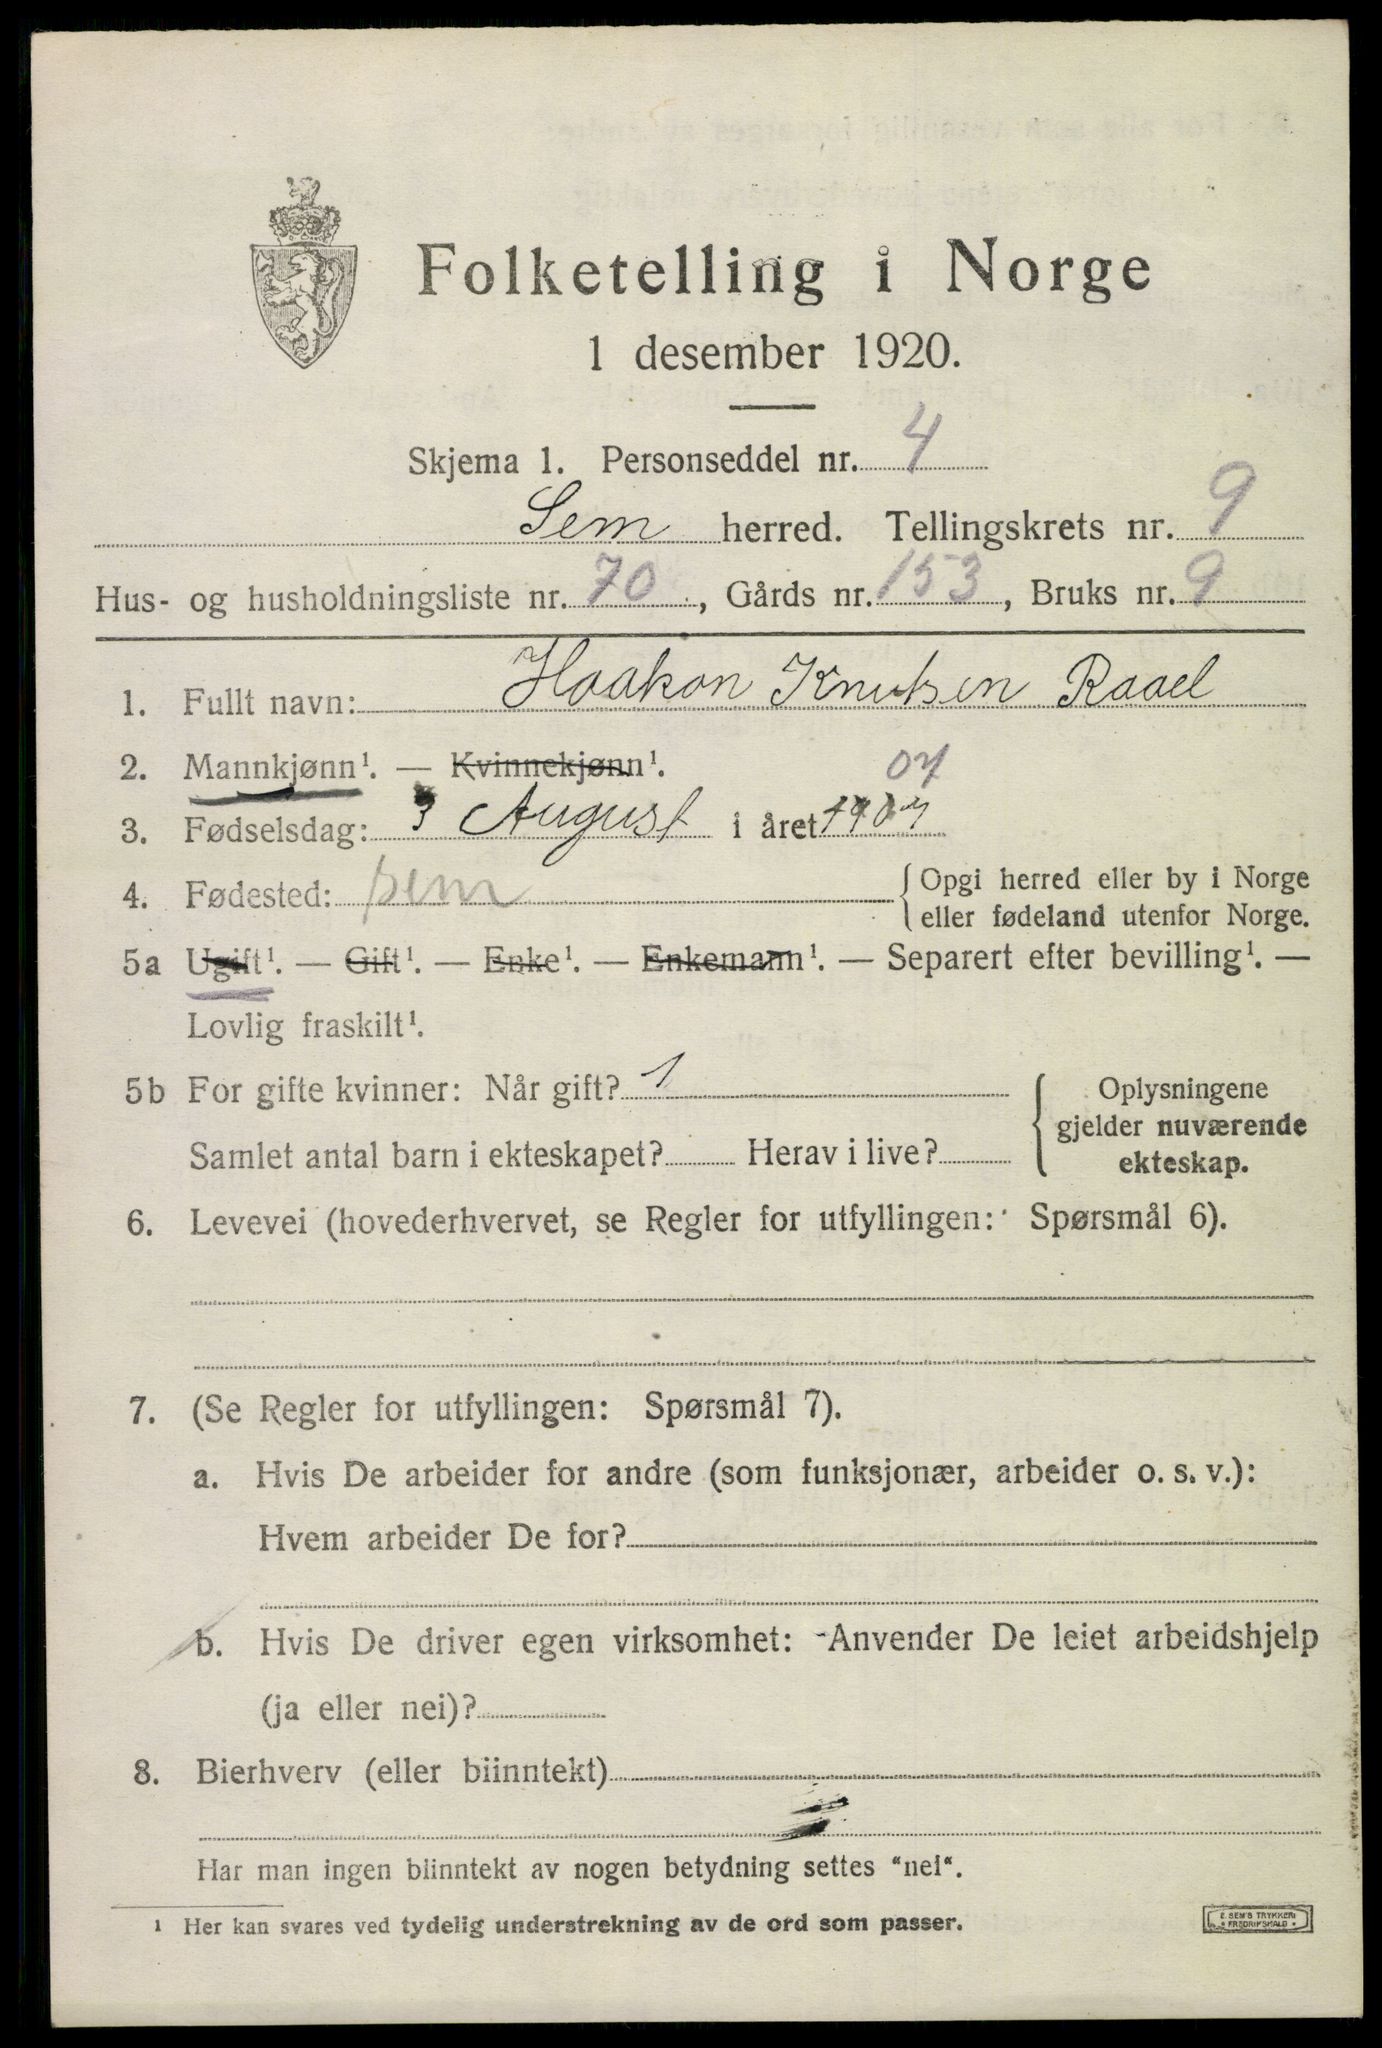 Folketelling i Norge
1 desember 1920.
Skjema 1. Personseddel nr. 4
Sem herred. Tellingskrets nr. 9
Hus- og husholdningsliste nr. 70, Gårds nr. 153, Bruks nr. 9
1. Fullt navn: Haakon Knutsen Raael
2. Mannkjønn¹. — Kvinnekjønn¹. 07
3. Fødselsdag: 3 August i året 1907
4. Fødested: sem {Opgi herred eller by i Norge
eller fødeland utenfor Norge.
5a Ugift¹. — Gift¹. — Enke¹. — Enkemann¹. — Separert efter bevilling¹. —
Lovlig fraskilt¹.
5b For gifte kvinner: Når gift? 1
Samlet antal barn i ekteskapet? Herav i live?
{Oplysningene
gjelder nuværende
ekteskap.
6. Levevei (hovederhvervet, se Regler for utfyllingen: Spørsmål 6).
7. (Se Regler for utfyllingen: Spørsmål 7).
a. Hvis De arbeider for andre (som funksjonær, arbeider o. s. v.):
Hvem arbeider De for?
b. Hvis De driver egen virksomhet: Anvender De leiet arbeidshjelp
(ja eller nei)?
8. Bierhverv (eller biinntekt)
Har man ingen biinntekt av nogen betydning settes "nei".
¹ Her kan svares ved tydelig understrekning av de ord som passer.
E. SEM'S TRYKKERI
FREDRIKSHALD